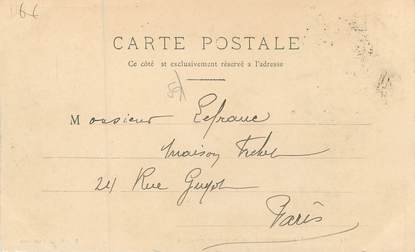 166
CARTE POSTALE
Ce côté est exclusivement réservé a l'adresse
Monsieur Lefranc
Maison
24 Rue Guyot
Paris